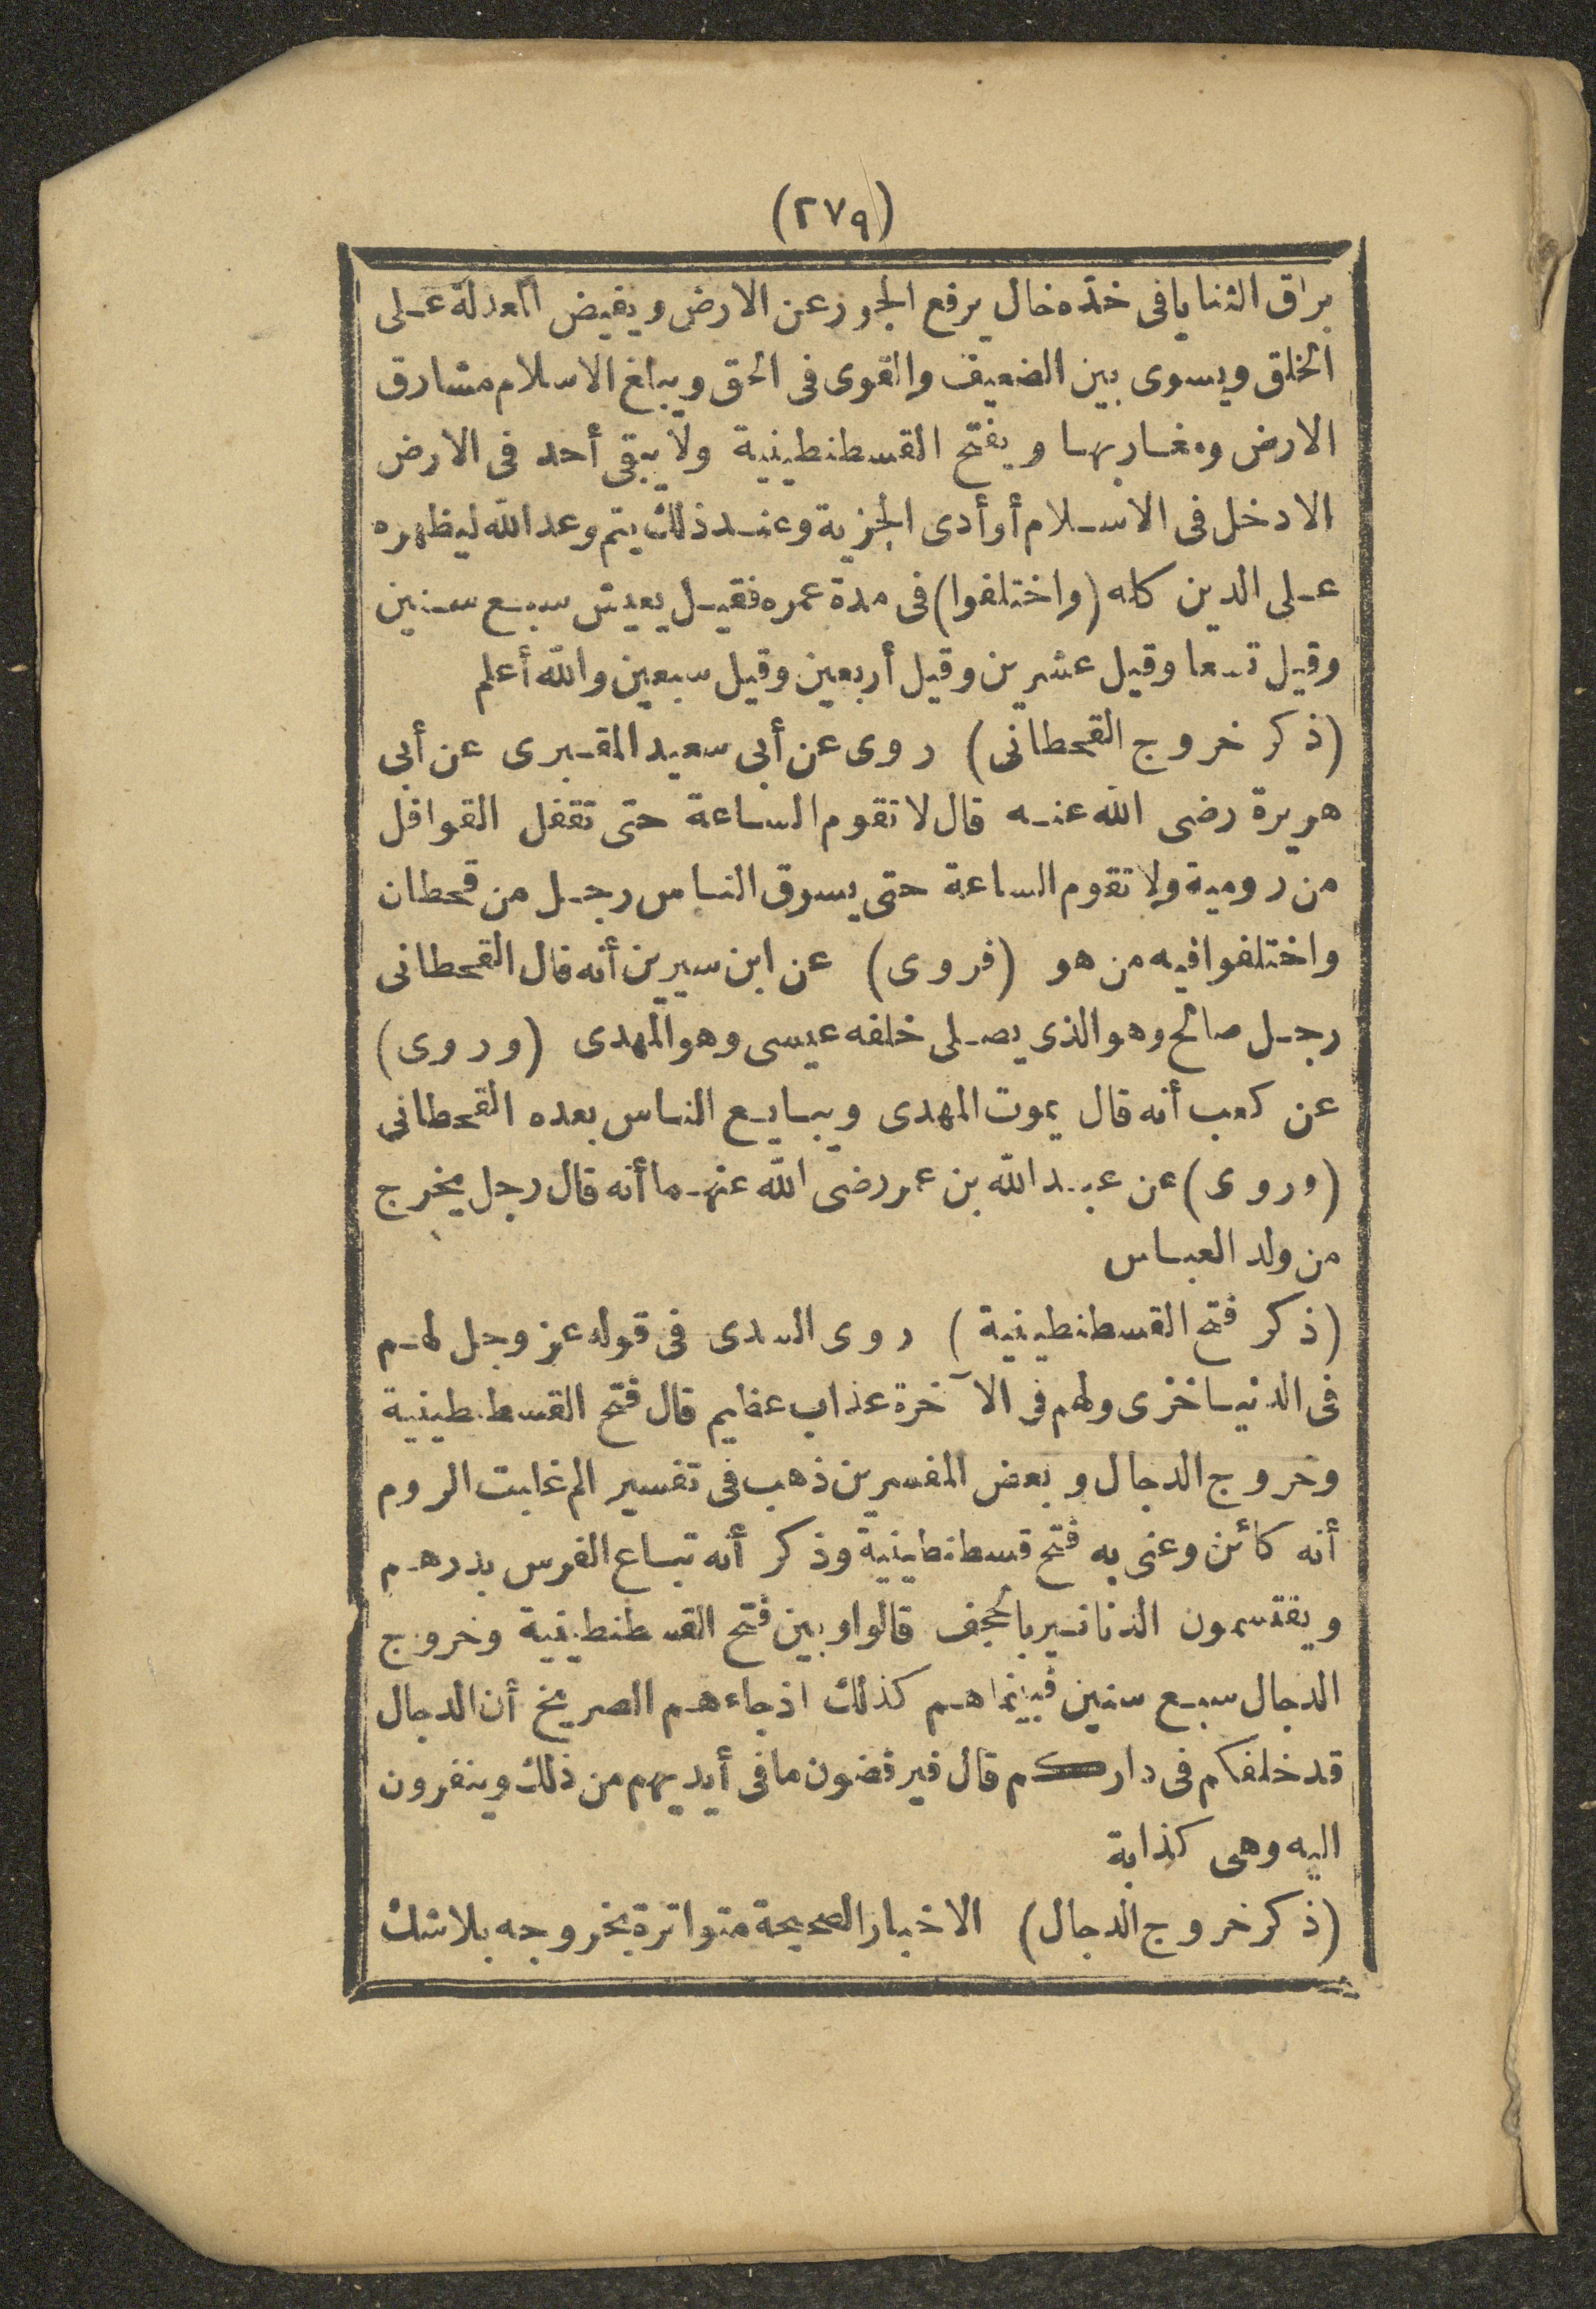 (٢٧٩)
براق الثنايا فى خده خال يرفع الجور عن الارض ويفيض المعدلة على
الخلق ويسوى بين الضعيف والقوى فى الحق ويبلغ الاسلام مشارق
الارض ومغاربها ويفتح القسطنطينية ولا يبقى أحد فى الارض
الا دخل فى الاسلام أو أدى الجزية وعند ذلك يتم وعد الله ليظهره
على الدين كله (واختلفوا) فى مدة عمره فقيل يعيش سبع سنين
وقيل تسعا وقيل عشرين وقيل أربعين وقيل سبعين والله أعلم
(ذكر خروج القحطانى) روى عن أبى سعيد المقبرى عن أبى
هريرة رضى الله عنه قال لا تقوم الساعة حتى تقفل القوافل
من رومية ولا تقوم الساعة حتى يسوق الناس رجل من قحطان
واختلفوا فيه من هو (فروى) عن ابن سيرين أنه قال القحطانى
رجل صالح وهو الذى يصلى خلفه عيسى وهو المهدى (وروى)
عن كعب أنه قال يموت المهدى ويبايع الناس بعده القحطانى
(وروى) عن عبد الله بن عمر رضى الله عنهما أنه قال رجل يخرج
من ولد العباس
(ذكر فتح القسطنطينية) روى السدى فى قوله عز وجل لهم
فى الدنيا خزى ولهم فى الآخرة عذاب عظيم قال فتح القسطنطينية
وخروج الدجال وبعض المفسرين ذهب فى تفسير الم غلبت الروم
أنه كائن وعنى به فتح قسطنطينية وذكر أنه تباع الفرس بدرهم
ويقتسمون الدنانير بالحجف قالوا وبين فتح القسطنطينية وخروج
الدجال سبع سنين فبينماهم كذلك اذ جاءهم الصريخ أن الدجال
قد خلفكم فى داركم قال فيرفضون ما فى أيديهم من ذلك وينفرون
اليه وهى كذابة
(ذكر خروج الدجال) الاخبار الصحيحة متواترة بخروجه بلاشك